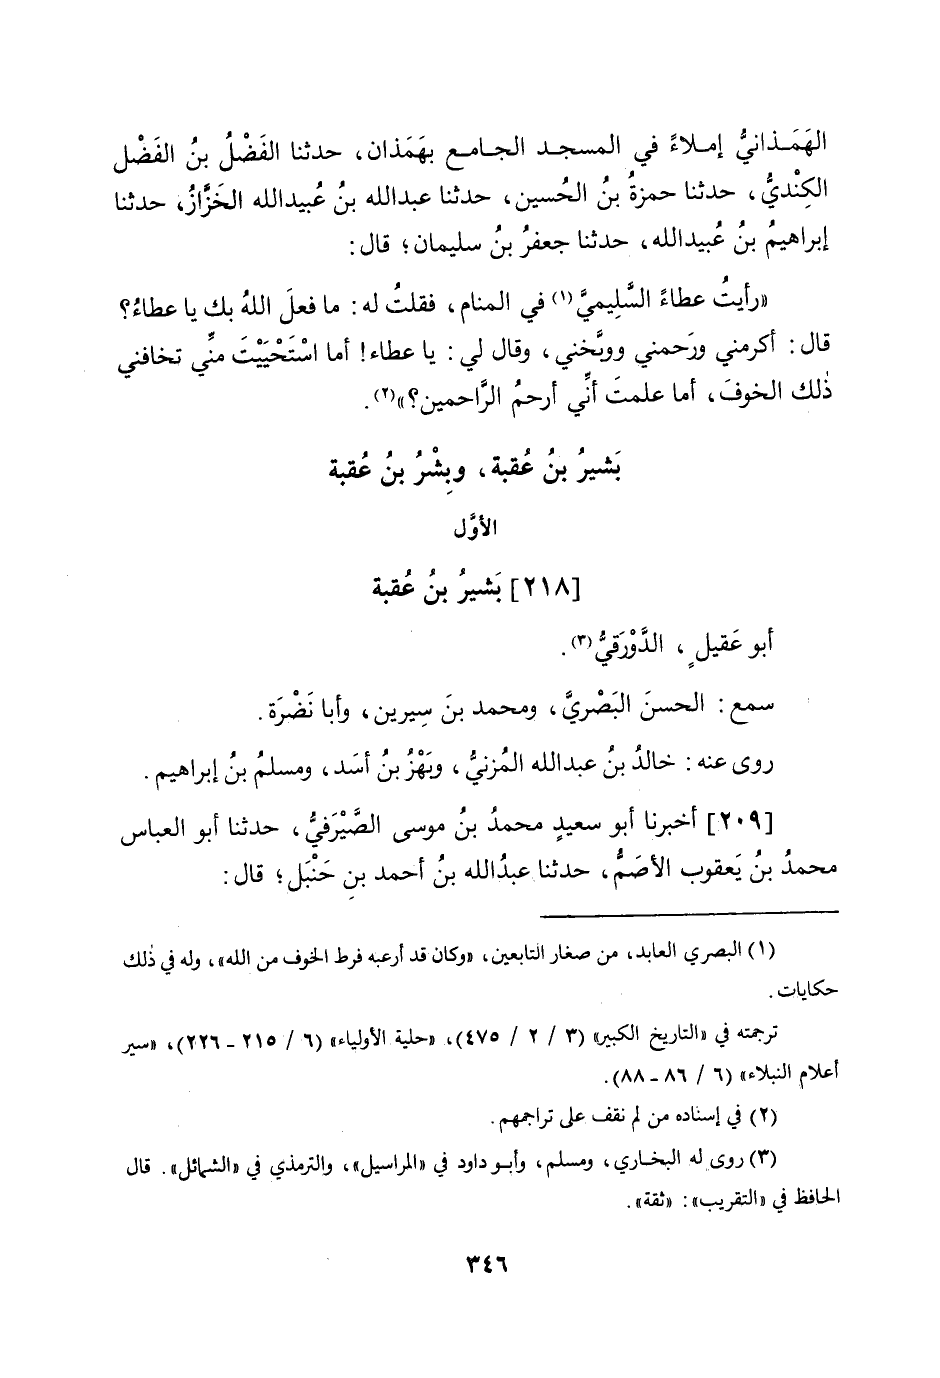 الهَمَـذانيُّ إمـلاءً في المسجـد الجـامـع بهَمَذان، حدثنا الفَضْلُ بنُ الفَضْل
الكِنْديُّ، حدثنا حمزةُ بنُ الحُسين، حدثنا عبدالله بنُ عُبيدالله الخَزَّازُ، حدثنا
إبراهيمُ بنُ عُبيدالله، حدثنا جعفرُ بنُ سليمان؛ قال:
«رأيتُ عطاءً السَّلِيميَّ(١) في المنام، فقلتُ له: ما فعلَ اللهُ بك يا عطاءُ؟
قال: أكرمني ورَحمني ووبَّخني، وقال لي: يا عطاء! أما اسْتَحْيَيْتَ منِّي تخافني
ذٰلك الخوفَ، أما علمتَ أنِّي أرحمُ الرَّاحمين؟»(٢).
بَشيرُ بنُ عُقبة، وبِشْرُ بنُ عُقبة
الأوَّل
[٢١٨] بَشيرُ بنُ عُقبة
أبو عَقيلٍ، الدَّوْرَقيُّ(٣).
سمع: الحسنَ البَصْريَّ، ومحمد بنَ سِيرين، وأبا نَضْرَة.
روى عنه: خالدُ بنُ عبدالله المُزنيُّ، وبَهْزُ بنُ أسَد، ومسلمُ بنُ إبراهيم.
[٢٠٩] أخبرنا أبو سعيدٍ محمدُ بنُ موسى الصَّيْرَفيُّ، حدثنا أبو العباس
محمدُ بنُ يَعقوب الأصَمُّ، حدثنا عبدُالله بنُ أحمد بنِ حَنْبَل؛ قال:
(١) البصري العابد، من صغار التابعين، «وكان قد أرعبه فرط الخوف من الله»، وله في ذٰلك
حكايات.
ترجمته في «التاريخ الكبير» (٣ / ٢ / ٤٧٥)، «حلية الأولياء» (٦ / ٢١٥ ـ ٢٢٦)، «سير
أعلام النبلاء» (٦ / ٨٦ ـ ٨٨).
(٢) في إسناده من لم نقف على تراجمهم.
(٣) روى له البخاري، ومسلم، وأبـو داود في «المراسيل»، والترمذي في «الشمائل». قال
الحافظ في «التقريب»: «ثقة».
٣٤٦